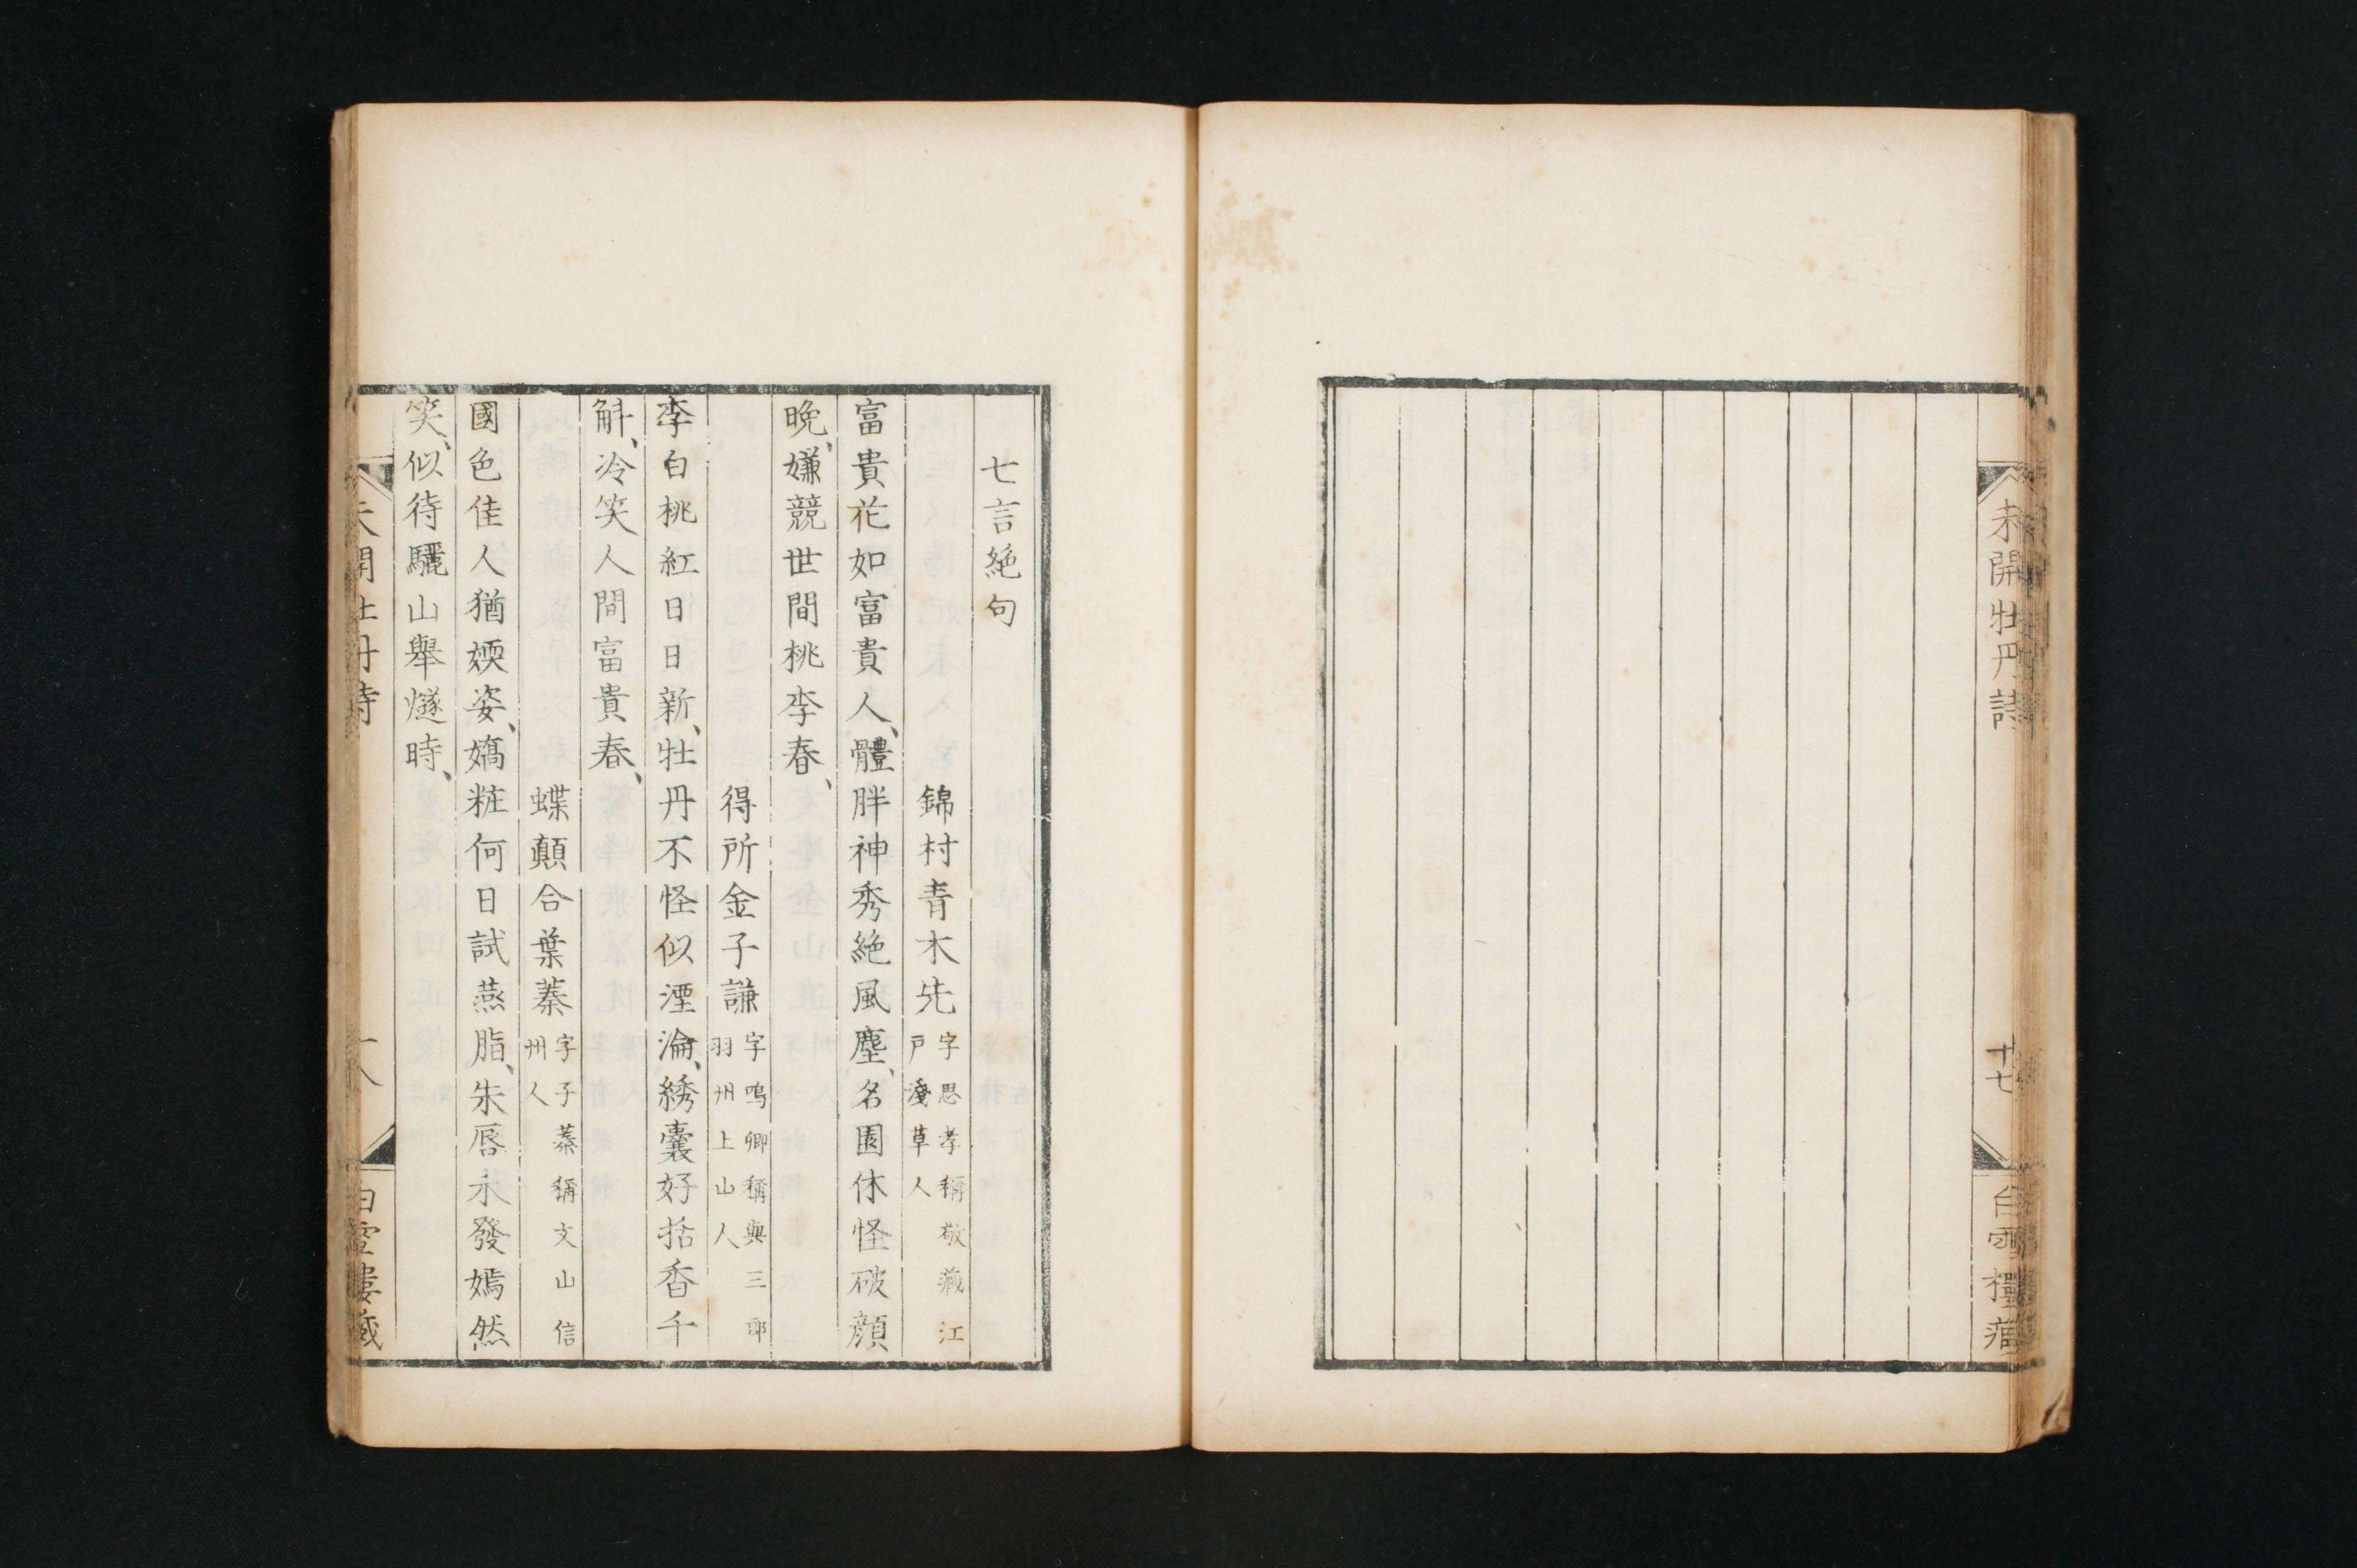 未開牡丹詩
十七
白雪樓藏
七言絶句
錦村青木先 字思孝稱敬藏江
戸淺草人
富貴花如富貴人、體胖神秀絶風塵、名園休怪破顔
晩、嫌競世間桃李春、
得所金子謙 字鳴卿稱與三郎
羽州上山人
李白桃紅日日新、牡丹不怪似湮淪、綉囊好括香千
斛、冷笑人間富貴春、
蝶顛合葉蓁 字子蓁稱文山信
州人
國色佳人猶媆姿、嬌粧何日試燕脂、朱唇未發嫣然
笑、似待驪山舉燧時、
未開牡丹詩
十八
白雪樓藏